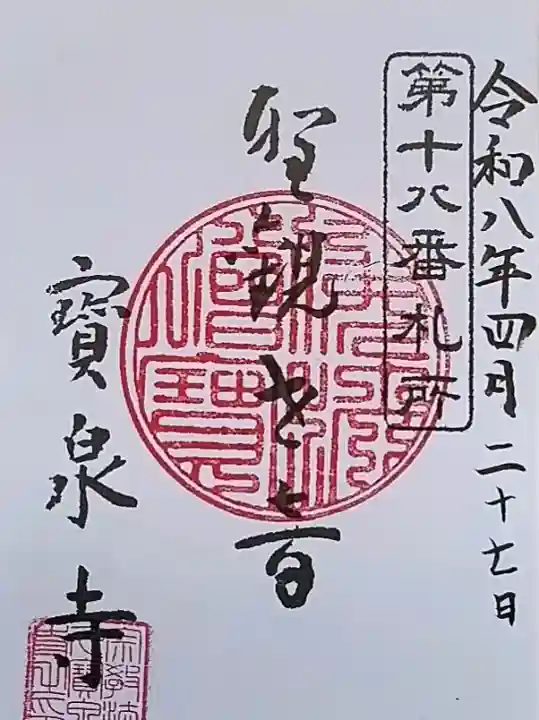 令和八年四月二十七日
第十八番札所
聖観世音
寳泉寺
佛法僧寳